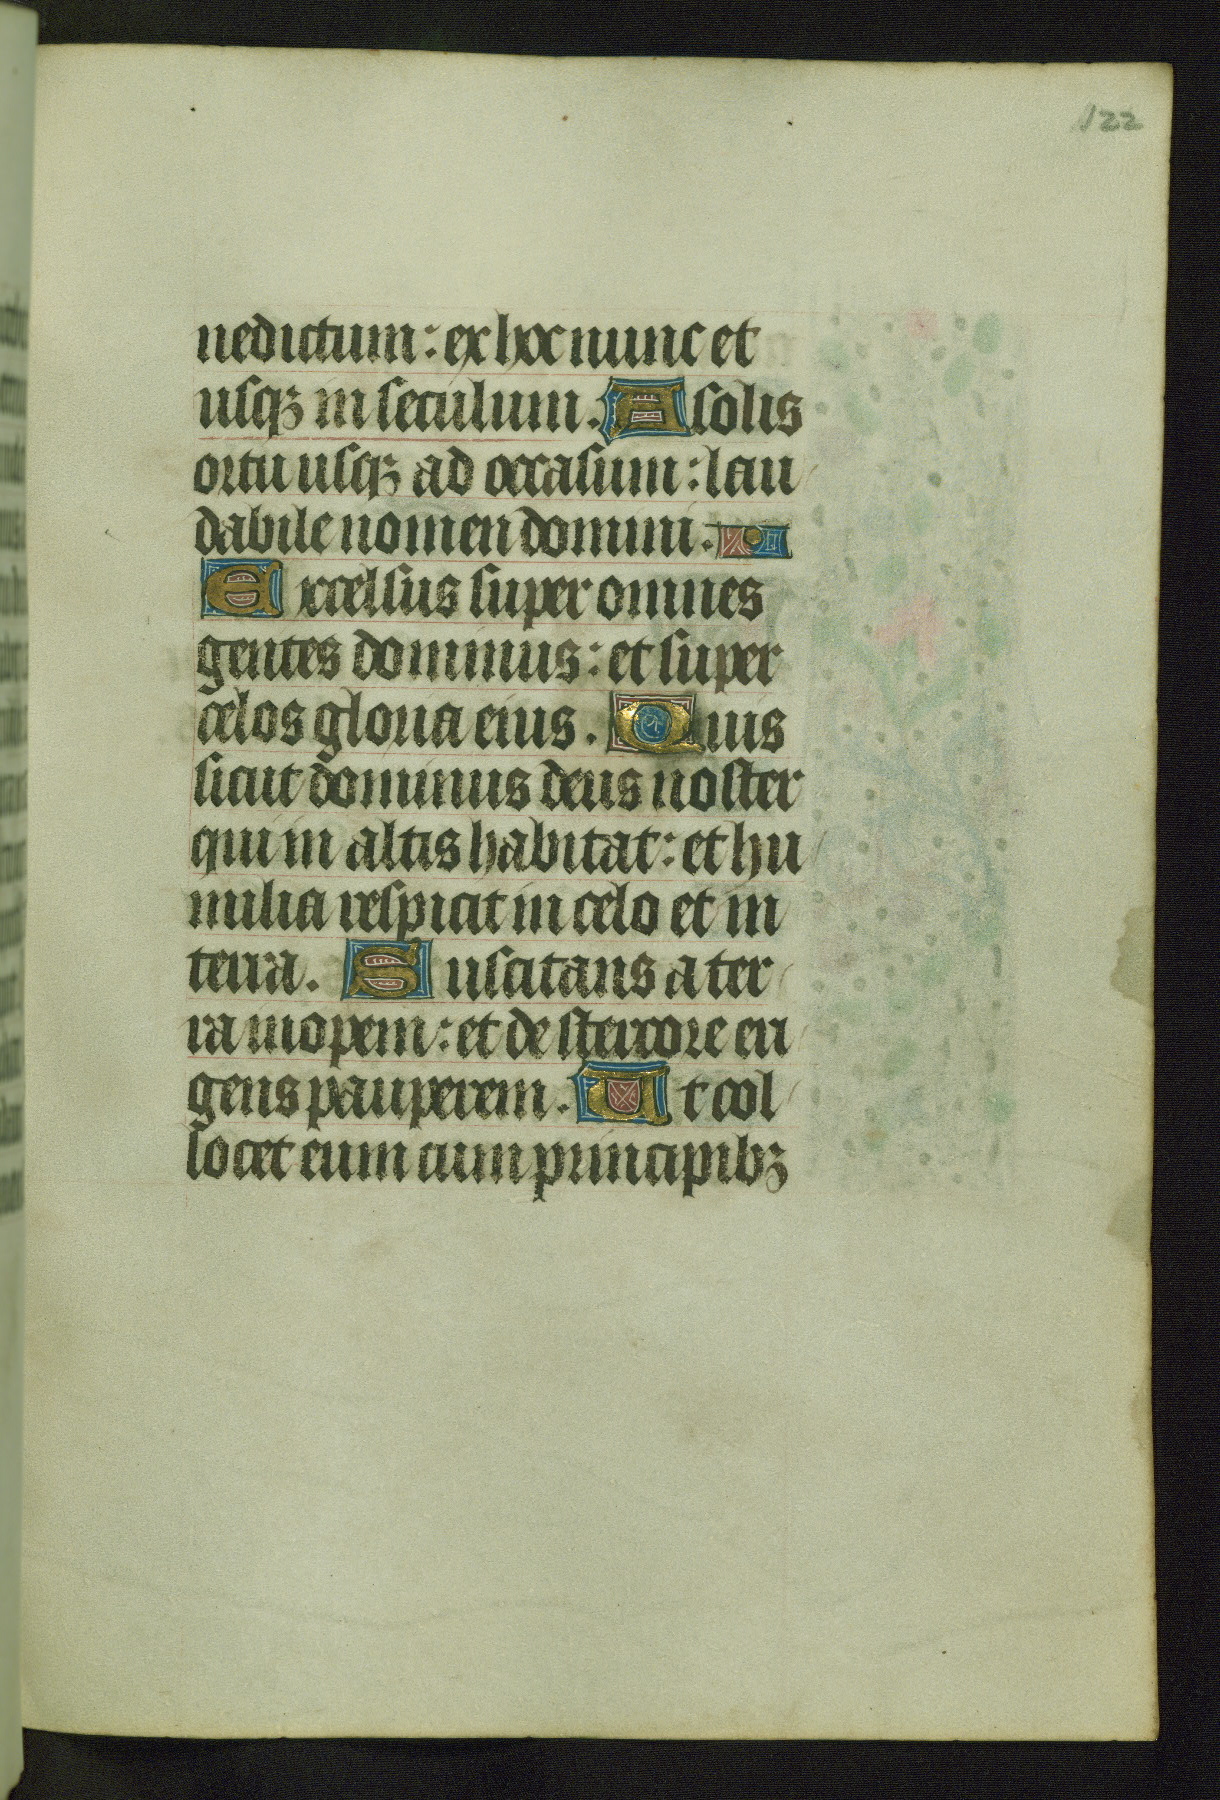 122
nedictum: ex hoc nunc et
usqꝫ in seculum. A solis
ortu usqꝫ ad occasum: lau
dabile nomen domini.
Excelsus super omnes
gentes dominus: et super
celos gloria eius. Quis
sicut dominus deus noster
qui in altis habitat: et hu
milia respicit in celo et in
terra. Suscitans a ter
ra inopem: et de stercore eri
gens pauperem. Ut col
locet eum cum principibꝫ